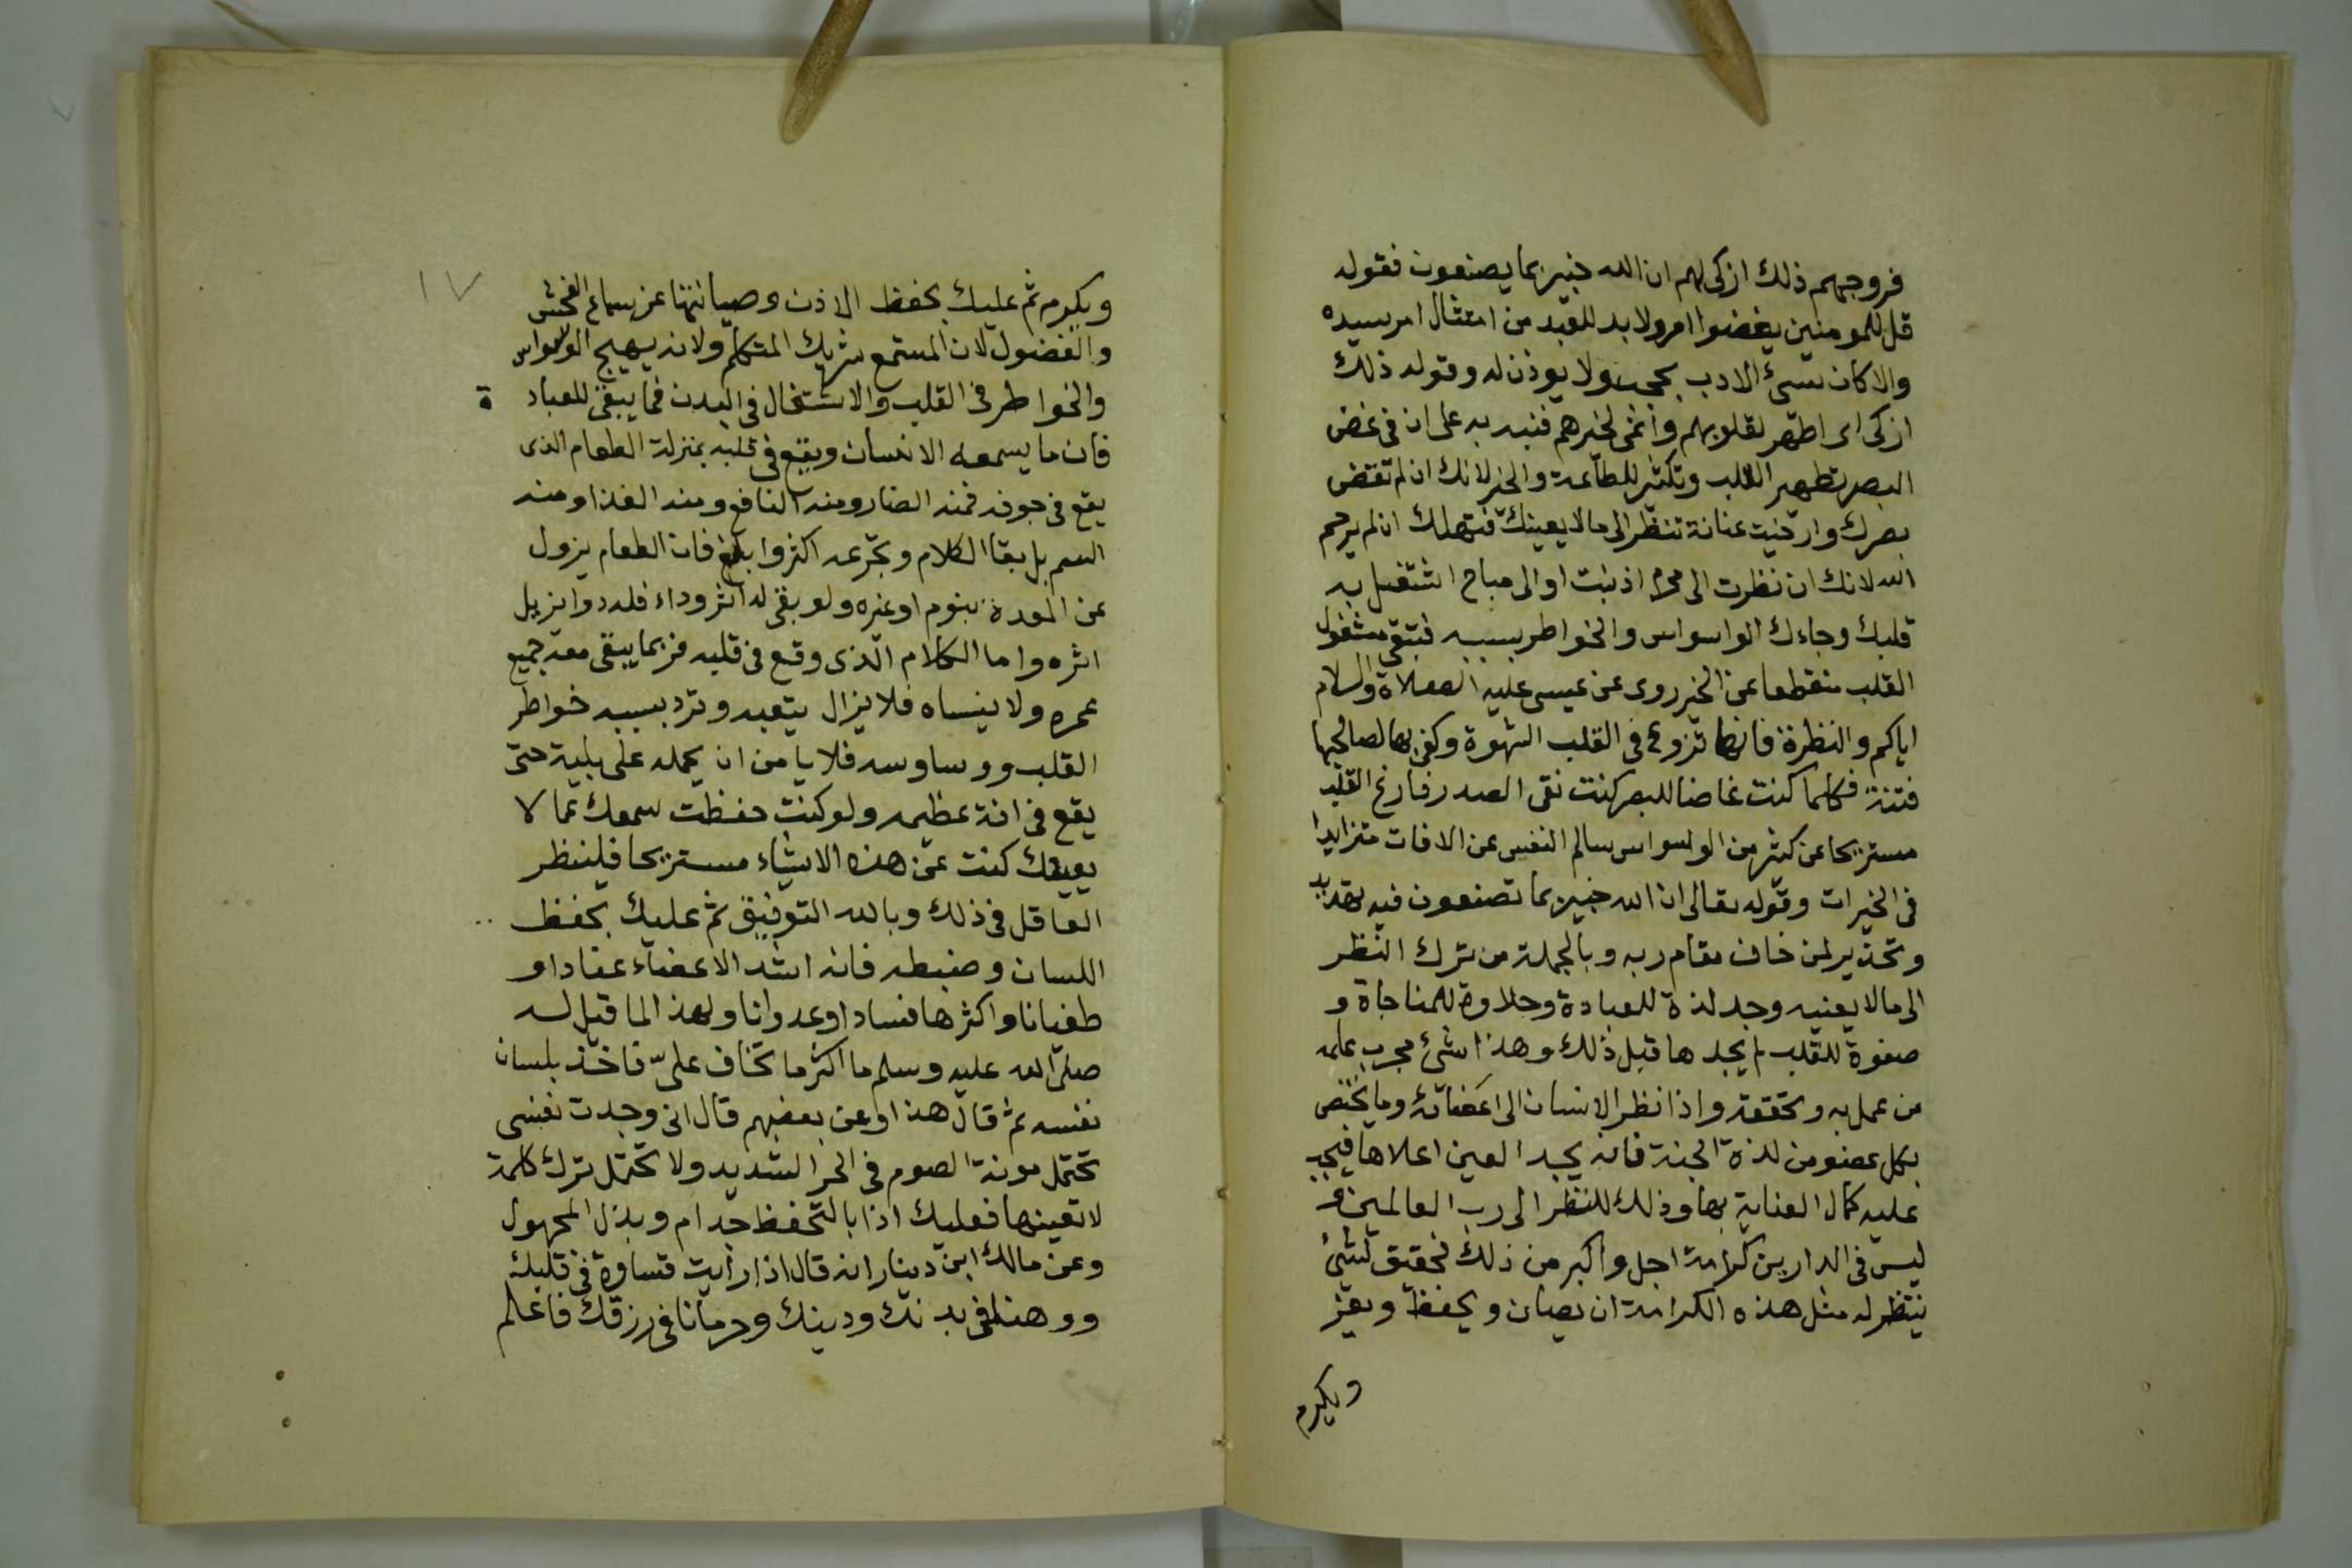 فروجهم ذلك ازكى لهم ان الله خبير بما يصنعون فقوله
قل للمومنين يغضوا امر ولا بد للعبد من امتثال امر سيده
والا كان سيئ الادب يحجب ولا يوذن له وقوله ذلك
ازكى اى اطهر لقلوبهم وانمى لخيرهم فنبه به على ان فى غض
البصر تطهير القلب وتكثير للطاعة والخير لانك ان لم تغض
بصرك وارخيت عنانة تنظر الى مالا يعينك فتهلك ان لم يرحم
الله لانك ان نظرت الى محرم اذنبت او الى مباح اشتغل به
قلبك وجاءك الواسواس والخواطر بسببه فتبقى مشغول
القلب منقطعا عن الخير روى عن عيسى عليه الصلاة والسلام
اياكم والنظرة فانها تزوع فى القلب الشهوة وكفى بها لصالحبها
فتنة فكلما كنت غاضا للبصر كنت نقى الصدر فارغ القلب
مستريحا عن كثير من الوسواس سالم النفس عن الافات متزايدا
فى الخيرات وقوله تعالى ان الله خبير بما تصنعون فيه تهديد
وتحذير لمن خاف مقام ربه وبالجملة من ترك النظر
الى مالا يعنيه وجد لذة للعبادة وحلاوة للمناجاة و
صفوة للقلب لم يجدها قبل ذلك وهذا شئ مجرب علمه
من عمل به وتحققه واذا نظر الانسان الى اعضائه وما يختص
بكل عضو من لذة الجنة فانه يجد العين اعلاها فيجب
عليه كمال العناية بها وذلك للنظر الى رب العالمين و
ليس فى الدارين كرامة اجل واكبر من ذلك فحقيق لشئ
ينتظر له مثل هذه الكرامة ان يصان ويحفظ ويعز
ويكرم
١٧
ويكرم ثم عليك بحفظ الاذن وصيانتها عن سماع الفحش
والفضول لان المستمع شريك المتكلم ولانه يهيج الوسواس
والخواطر فى القلب والاشتغال فى البدن فما يبقى للعباد ة
فان ما يسمعه الانسان ويقع فى قلبه بمنزلة الطعام الذى
يقع فى جوفه فمنه الضار ومنه النافع ومنه الغذا ومنه
السم بل بقا الكلام وتجرعه اكثر وابلغ فان الطعام يزول
عن المعدة بنوم او غيره ولو بقى له اثر وداء فله دوا يزيل
اثره واما الكلام الذى وقع فى قلبه فربما يبقى معه جميع
عمره ولا ينساه فلا يزال يتعبه وترد بسببه خواطر
القلب ووساوسه فلا يامن ان يحمله على بلية حتى
يقع فى افة عظيمه ولو كنت حفظت سمعك عما لا
يعينك كنت عن هذه الاشياء مستريحا فلينظر
العاقل فى ذلك وبالله التوفيق ثم عليك بحفظ
اللسان وضبطه فانه اشد الاعضاء عنادا و
طغيانا واكثرها فسادا وعدوانا ولهذا لما قيل له
صلى الله عليه وسلم ما اكثر ما تخاف على فاخذ بلسان
نفسه ثم قال هذا وعن بعضهم قال انى وجدت نفسى
تحتمل مونة الصوم فى الحر الشديد ولا تحتمل ترك كلمة
لا تعينها فعليك اذا بالتحفظ حدام وبذل المجهول
وعن مالك ابن دينار انه قال اذا رأيت قساوة فى قلبك
ووهنا فى بدنك ودينك وحرمانا فى رزقك فاعلم